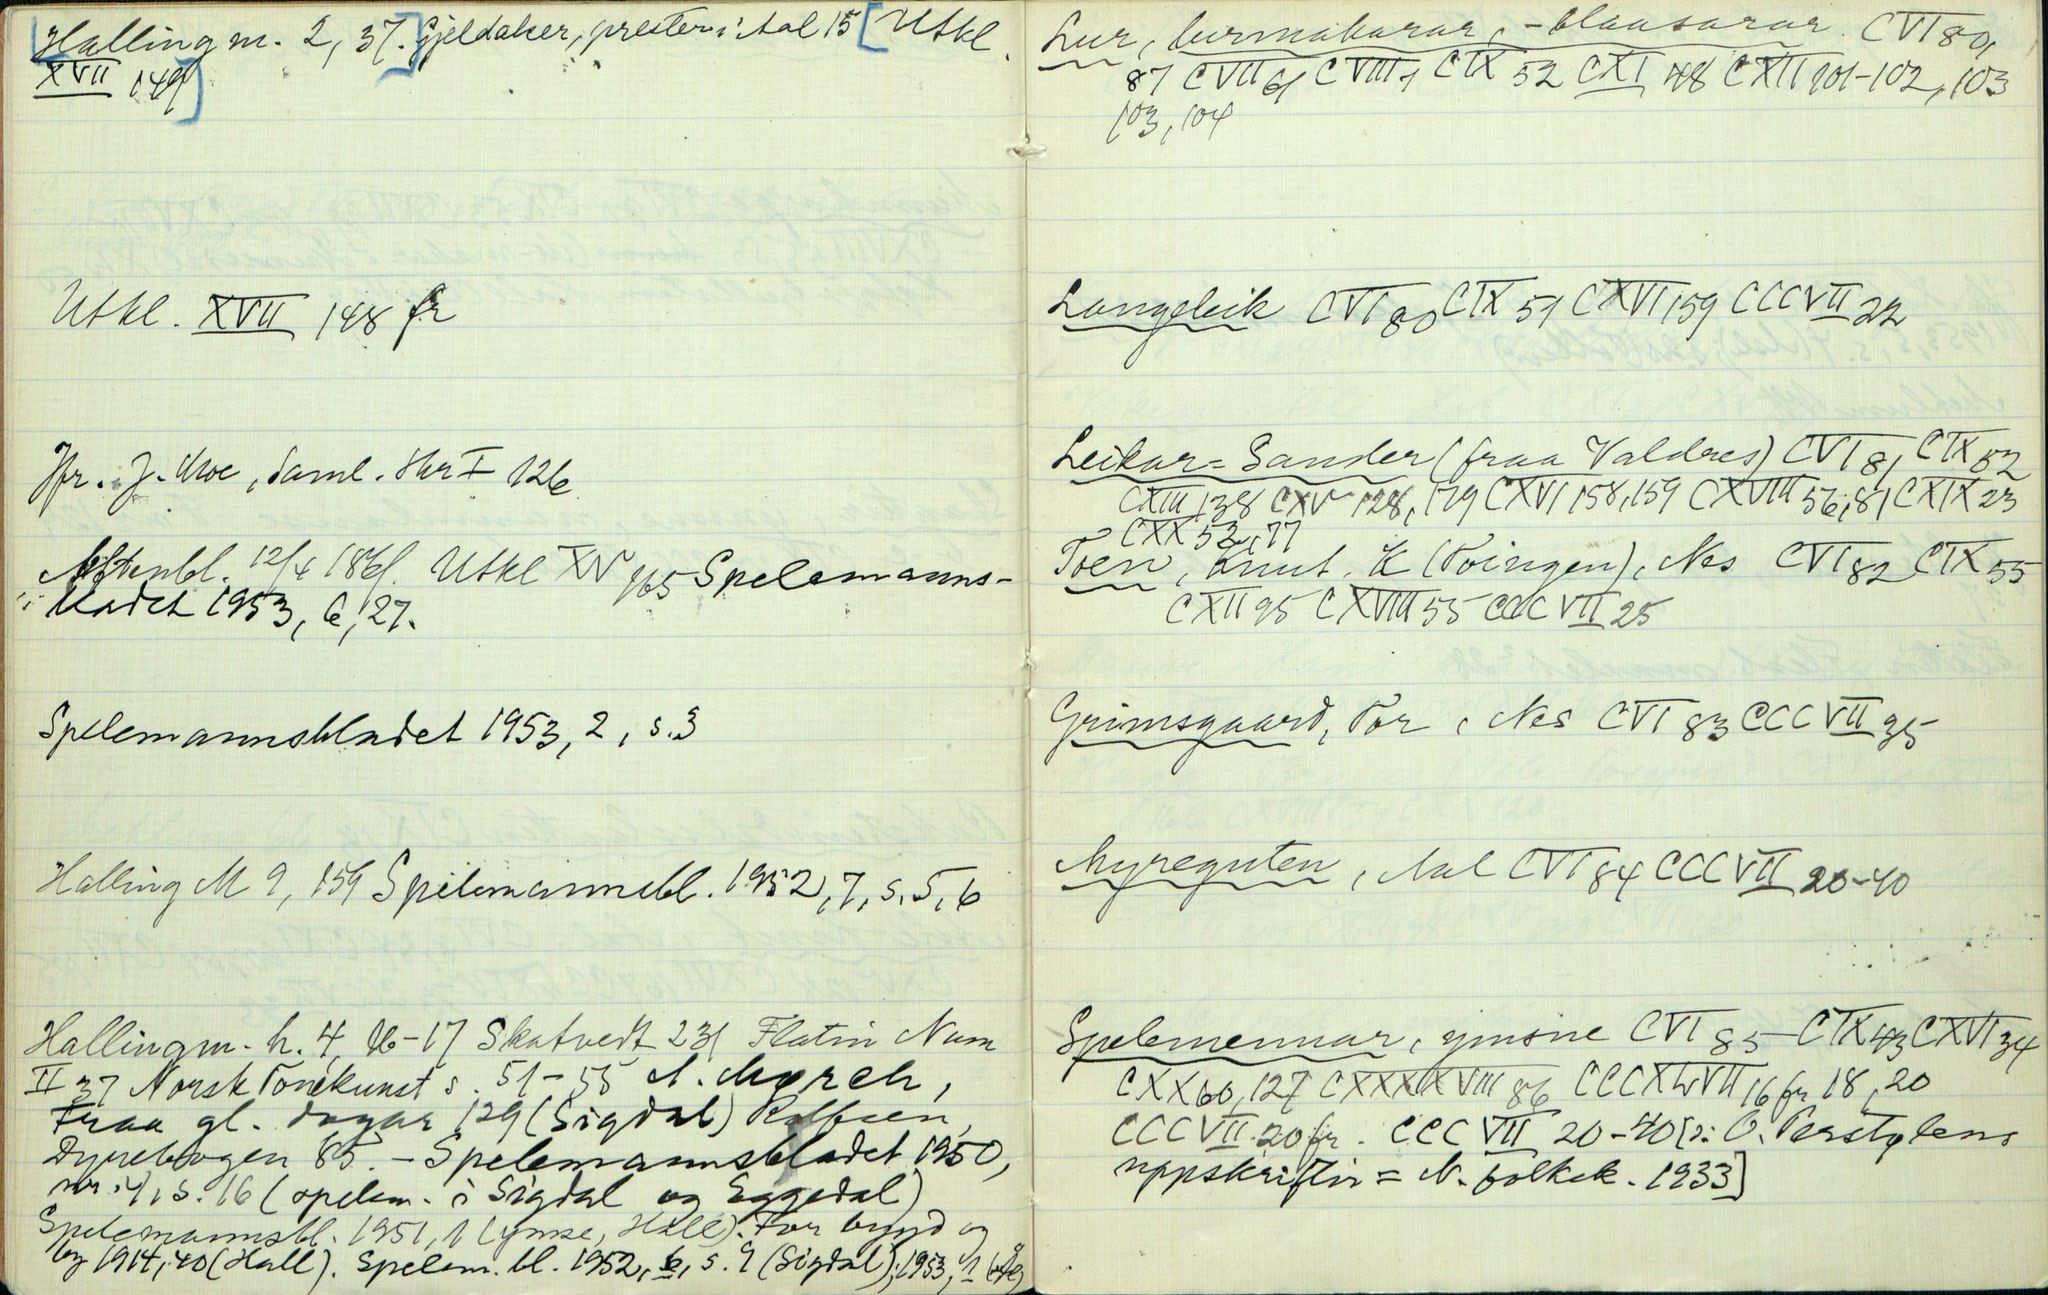 [Hallingm. 2, 37.] Gjeldaker, prester i Aal 15 [Utkl.
XVII 149]
Utkl. XVII 148 fr
Jfr. J. Moe, Saml. Skr I 126
Aftenbl. 12/4 1861. Utkl XV 165 Spelemanns-
bladet 1953, 6, 27.
Spelemannsbladet 1953, 2, s. 3
Halling M 9, 159 Spelemannsbl. 1952, 7, s. 5, 6
Hallingm. h. 4, 16-17 Skatvedt 231 Flatin Num
II 37 Norsk Tonekunst s. 51-55 A. Mørch,
Fraa gl. dagar 129 (Sigdal) Rolfsen,
Dyrebogen 85. - Spelemannsbladet 1950,
nr. 4, s. 16 (spelem. i Sigdal og Eggedal)
Spelemannsbl. 1951, 1 (ymse, Hall). For bygd og
by 1914, 40 (Hall). Spelem.bl. 1952, 6, s. 9 (Sigdal); 1953, 1
Lur, lurmakarar, -blaasarar. CVI 80,
87 CVII 61 CVIII 1 CIX 52 CXI 48 CXII 101-102, 103
103, 104
Langeleik CVI 80 CIX 51 CXVI 159 CCCVII 22
Leikar-Sander (fraa Valdres) CVI 81 CIX 52
CXIII 138 CXV 128, 129 CXVI 158, 159 CXVIII 56, 81 CXIX 23
CXX 52, 77
Toen, Knut. K (Toingen), Nes CVI 82 CIX 55
CXII 95 CXVIII 55 CCCVII 25
Grimsgaard, Tor, Nes CVI 83 CCCVII 35
Myreguten, Aal CVI 84 CCCVII 20-40
Spelemennar, ymsne CVI 85 - CIX 43 CXVI 34
CXX 60, 127 86 CCCXLVII 16 fr 18, 20
CCCVII 20 fr. CCCVII 20-40 [ɔ: O. Perstølens
uppskrifter = N. folkek. 1933]